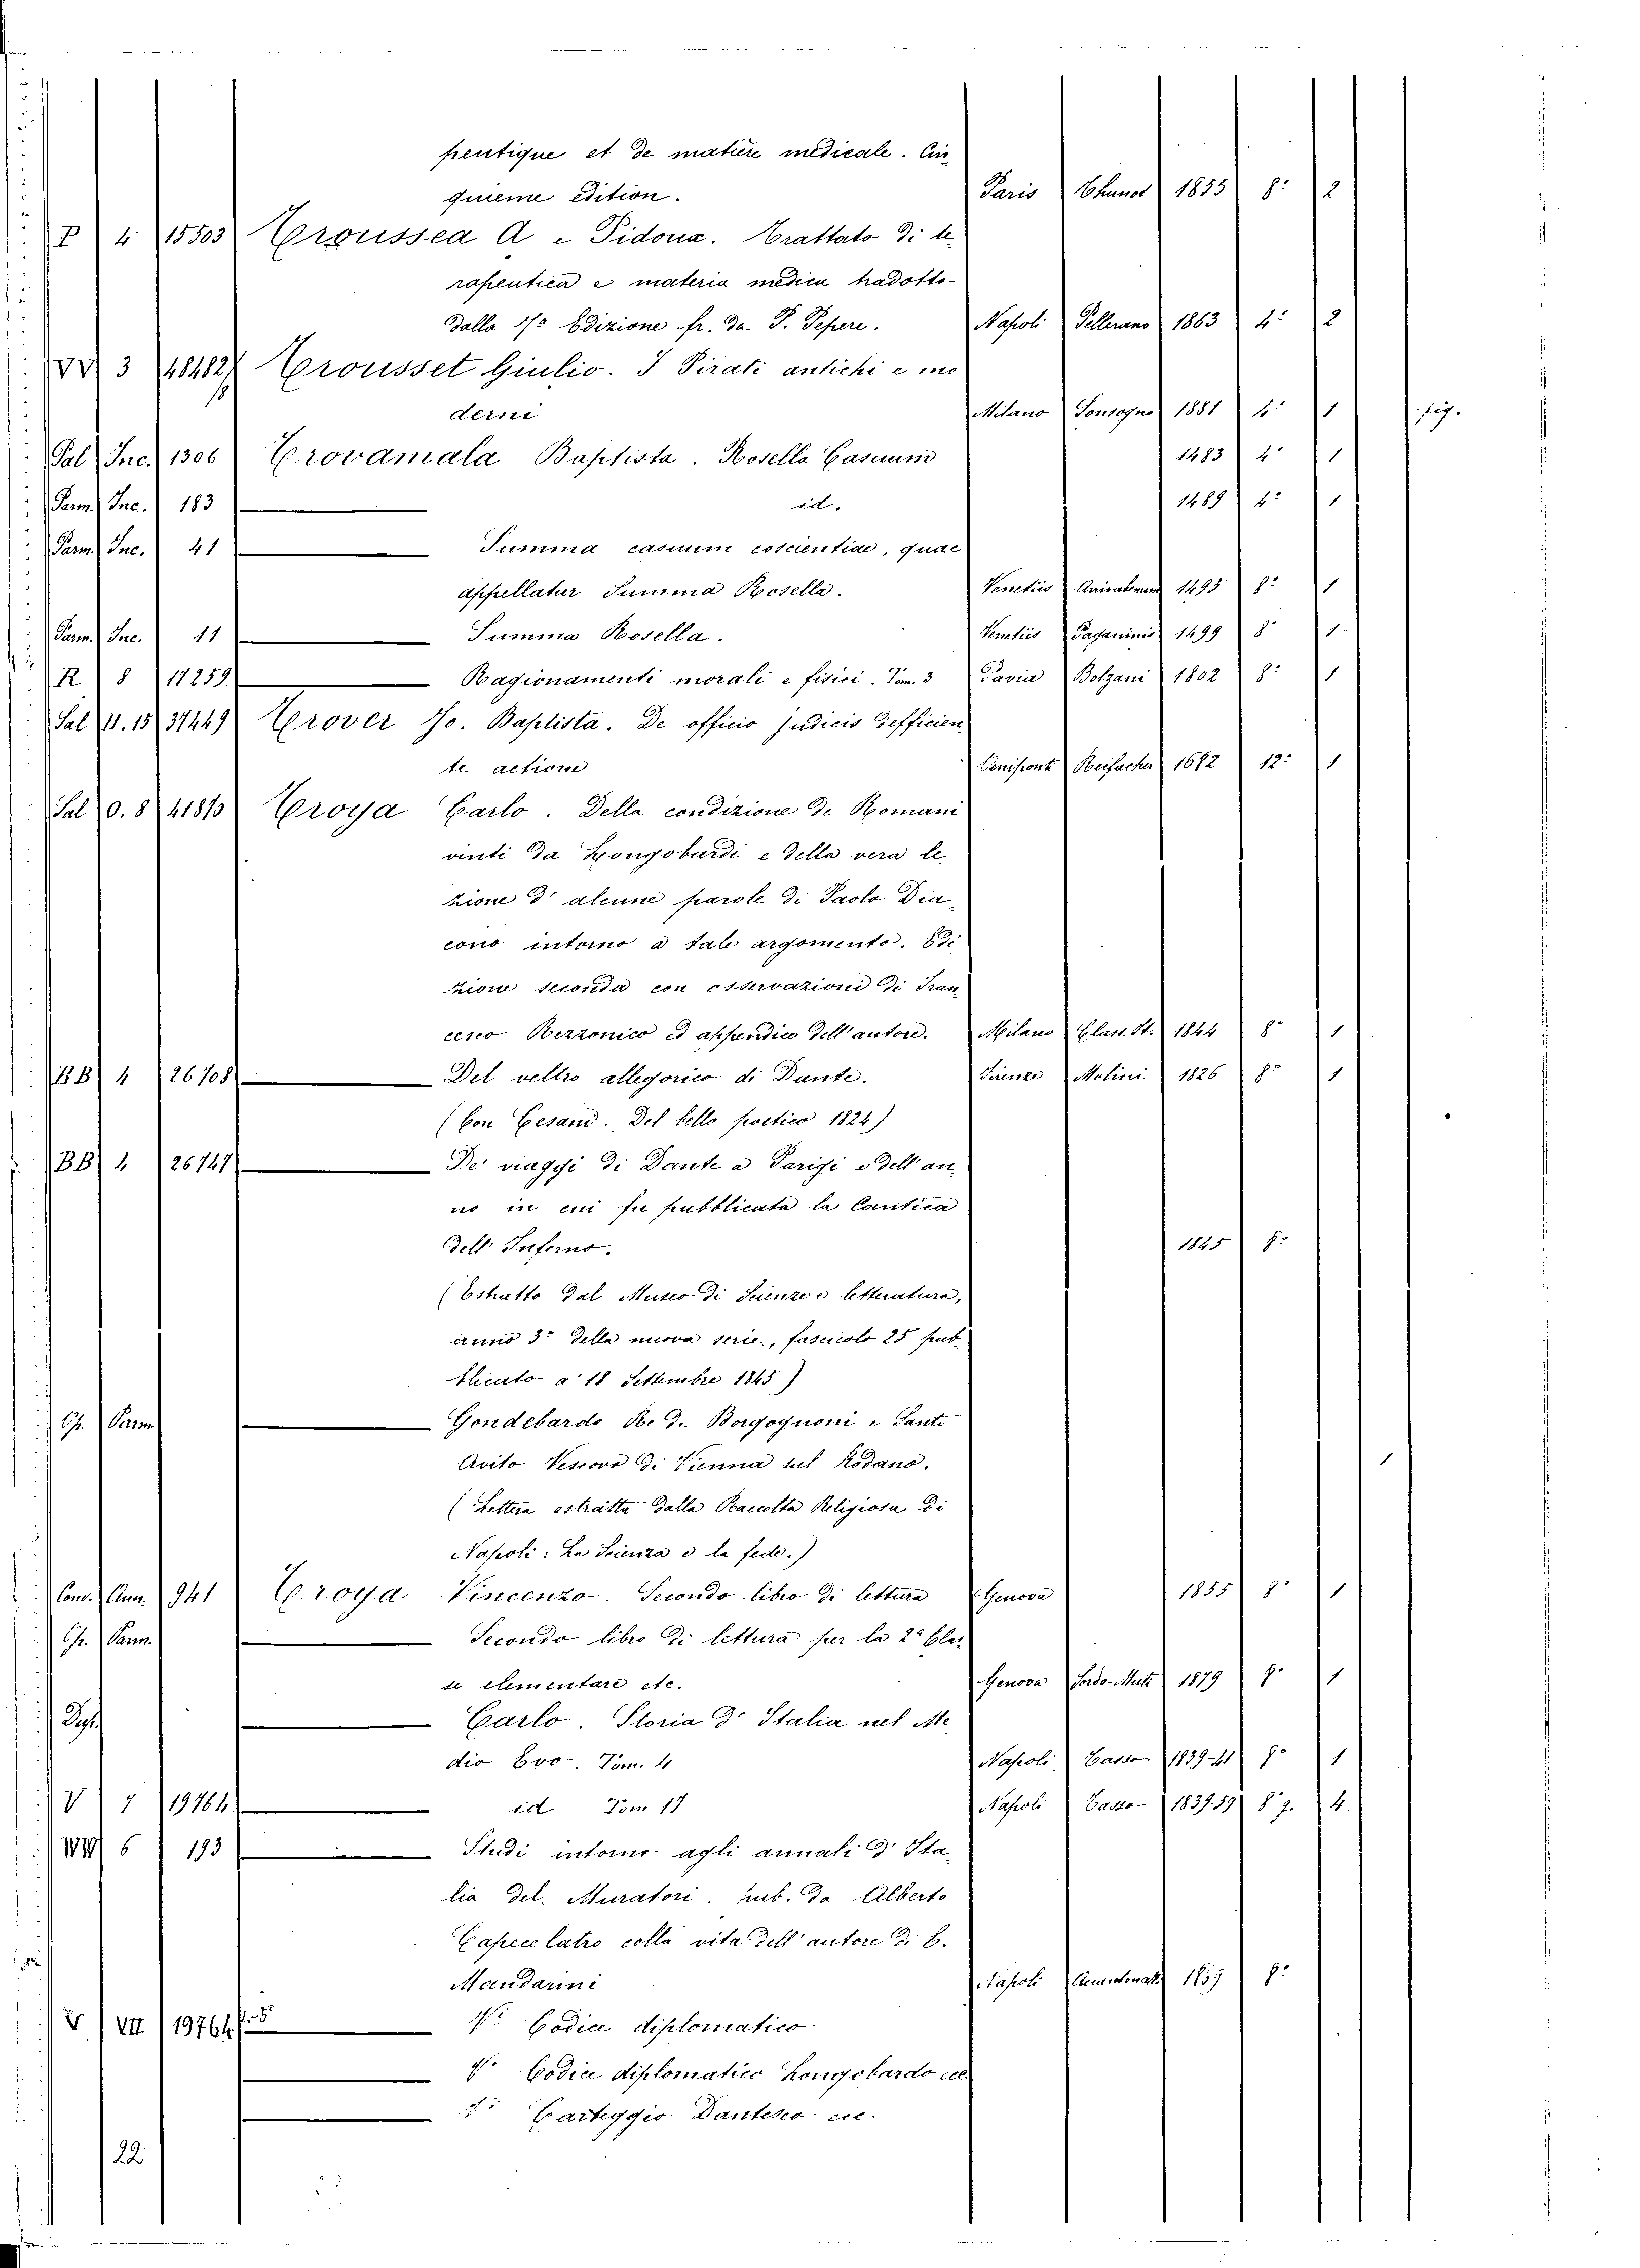 peutique et de matière medicale. Cin
quieme edition. Paris Chunot 1855 8° 2
P 4 15503 Troussea A e Pidoux. Trattato di te
rapeutica e materia medica tradotto
dalla 7a Edizione fr. da P. Pepere. Napoli Pellerano 1863 4° 2
VV 3 48482 Trousset Giulio. I Pirati antichi e mo
derni Milano Sonsogno 1881 4° 1 fig.
Pal Inc. 1306 Trovamala Baptista. Rosella Casuum 1483 4° 1
Parm. Inc. 183 id. 1489 4° 1
Parm. Inc. 41 Summa casuum coscientiae, quae
appellatur Summa Rosella. Venetiis Arrivabenum 1495 8° 1
Parm. Inc. 11 Summa Rosella. Venetiis Paganinis 1499 8° 1
R 8 17259 Ragionamenti morali e fisici. Tom. 3 Pavia Bolzani 1802 8° 1
Sal N. 15 37449 Trover Jo. Baptista. De officio judicis defficien
te actione Oeniponte Reisacher 1682 12° 1
Sal O. 8 41810 Troya Carlo. Della condizione de Romani
vinti da Longobardi e della vera le
zione d'alcune parole di Paolo Dia
cono intorno a tale argomento. Edi
zione seconda con osservazioni di Fran
cesco Rezzonico ed appendice dell'autore. Milano Class. It. 1844 8° 1
BB 4 26708 Del veltro allegorico di Dante. Firenze Molini 1826 8° 1
(Con Cesari. Del bello poetico 1824)
BB 4 26747 De' viaggi di Dante a Parigi e dell'an
no in cui fu pubblicata la Cantica
dell'Inferno. 1845 8°
(Estratto dal Museo di Scienze e letteratura,
anno 3° della nuova serie, fascicolo 25 pub
blicato a' 18 Settembre 1845)
Parm Gondebardo Re de Borgognoni e Santo
Avito Vescovo di Vienna sul Rodano. 1
(Lettera estratta dalla Raccolta Religiosa di
Napoli: La Scienza e la fede.)
Conv. Ann. 941 Troya Vincenzo. Secondo libro di lettura Genova 1855 8° 1
Parm. Secondo libro di lettura per la 2a Clas
se elementare etc. Genova Sordo-Muti 1879 8° 1
Dep. Carlo. Storia d'Italia nel Me
dio Evo. Tom. 4 Napoli Tasso 1839-41 8° 1
V 7 19764 id Tom 17 Napoli Tasso 1839-59 8° g. 4
VVV 6 193 Studi intorno agli annali d'Ita
lia del Muratori. pub. da Alberto
Capecelatro colla vita dell'autore di C.
Mandarini Napoli 1869 8°
V VII 19764 f. 5 V° Codice diplomatico
V° Codice diplomatico Longobardo
Carteggio Dantesco
22